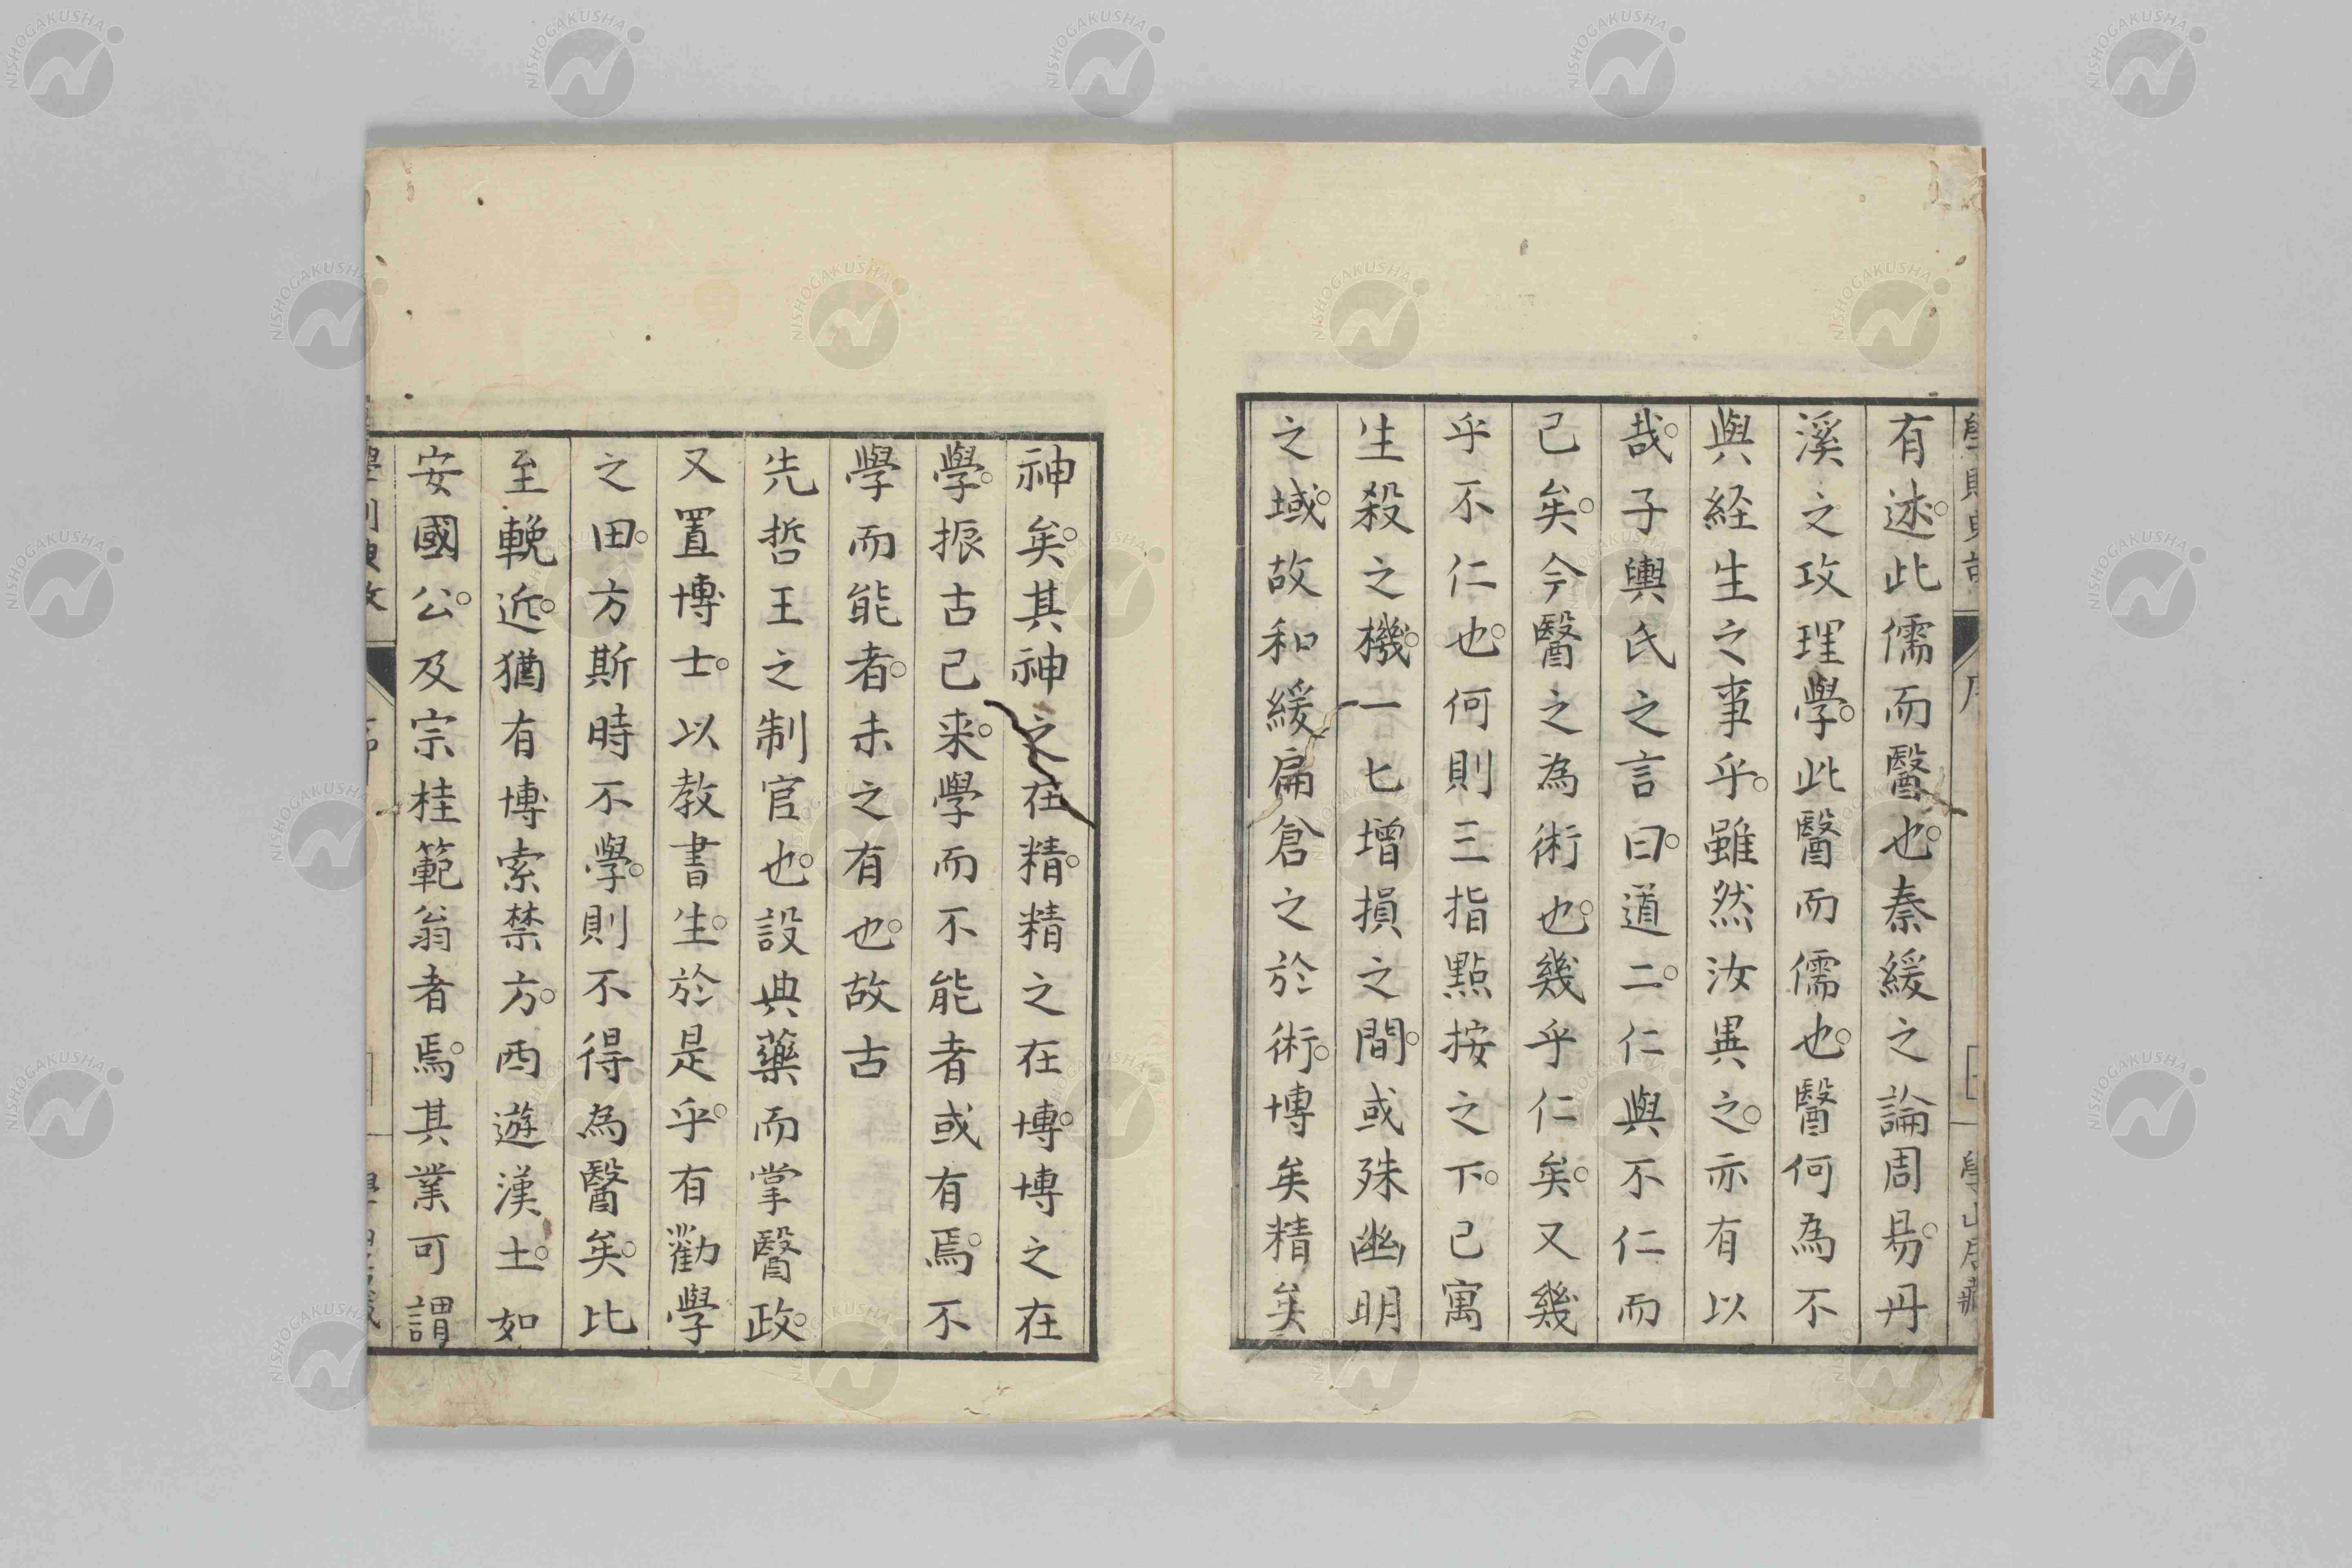 有述。此儒而醫也。秦緩之論周易。丹
溪之攻理學。此醫而儒也。醫何為不
與経生之事乎。雖然汝異之。亦有以
哉。子輿氏之言曰。道二。仁與不仁而
已矣。今醫之為術也。幾乎仁矣。又幾
乎不仁也。何則三指點按之下。已寓
生殺之機。一匕增損之間。或殊幽明
之域。故和緩扁倉之於術。博矣精矣
神矣。其神之在精。精之在博。博之在
學。振古已来。學而不能者或有焉。不
學而能者。未之有也。故古
先哲王之制官也。設典藥而掌醫政。
又置博士。以教書生。於是乎。有勸學
之田。方斯時不學。則不得為醫矣。比
至輓近。猶有博索禁方。西遊漢土。如
安國公。及宗桂範翁者焉。其業可謂
NISHOGAKUSHA